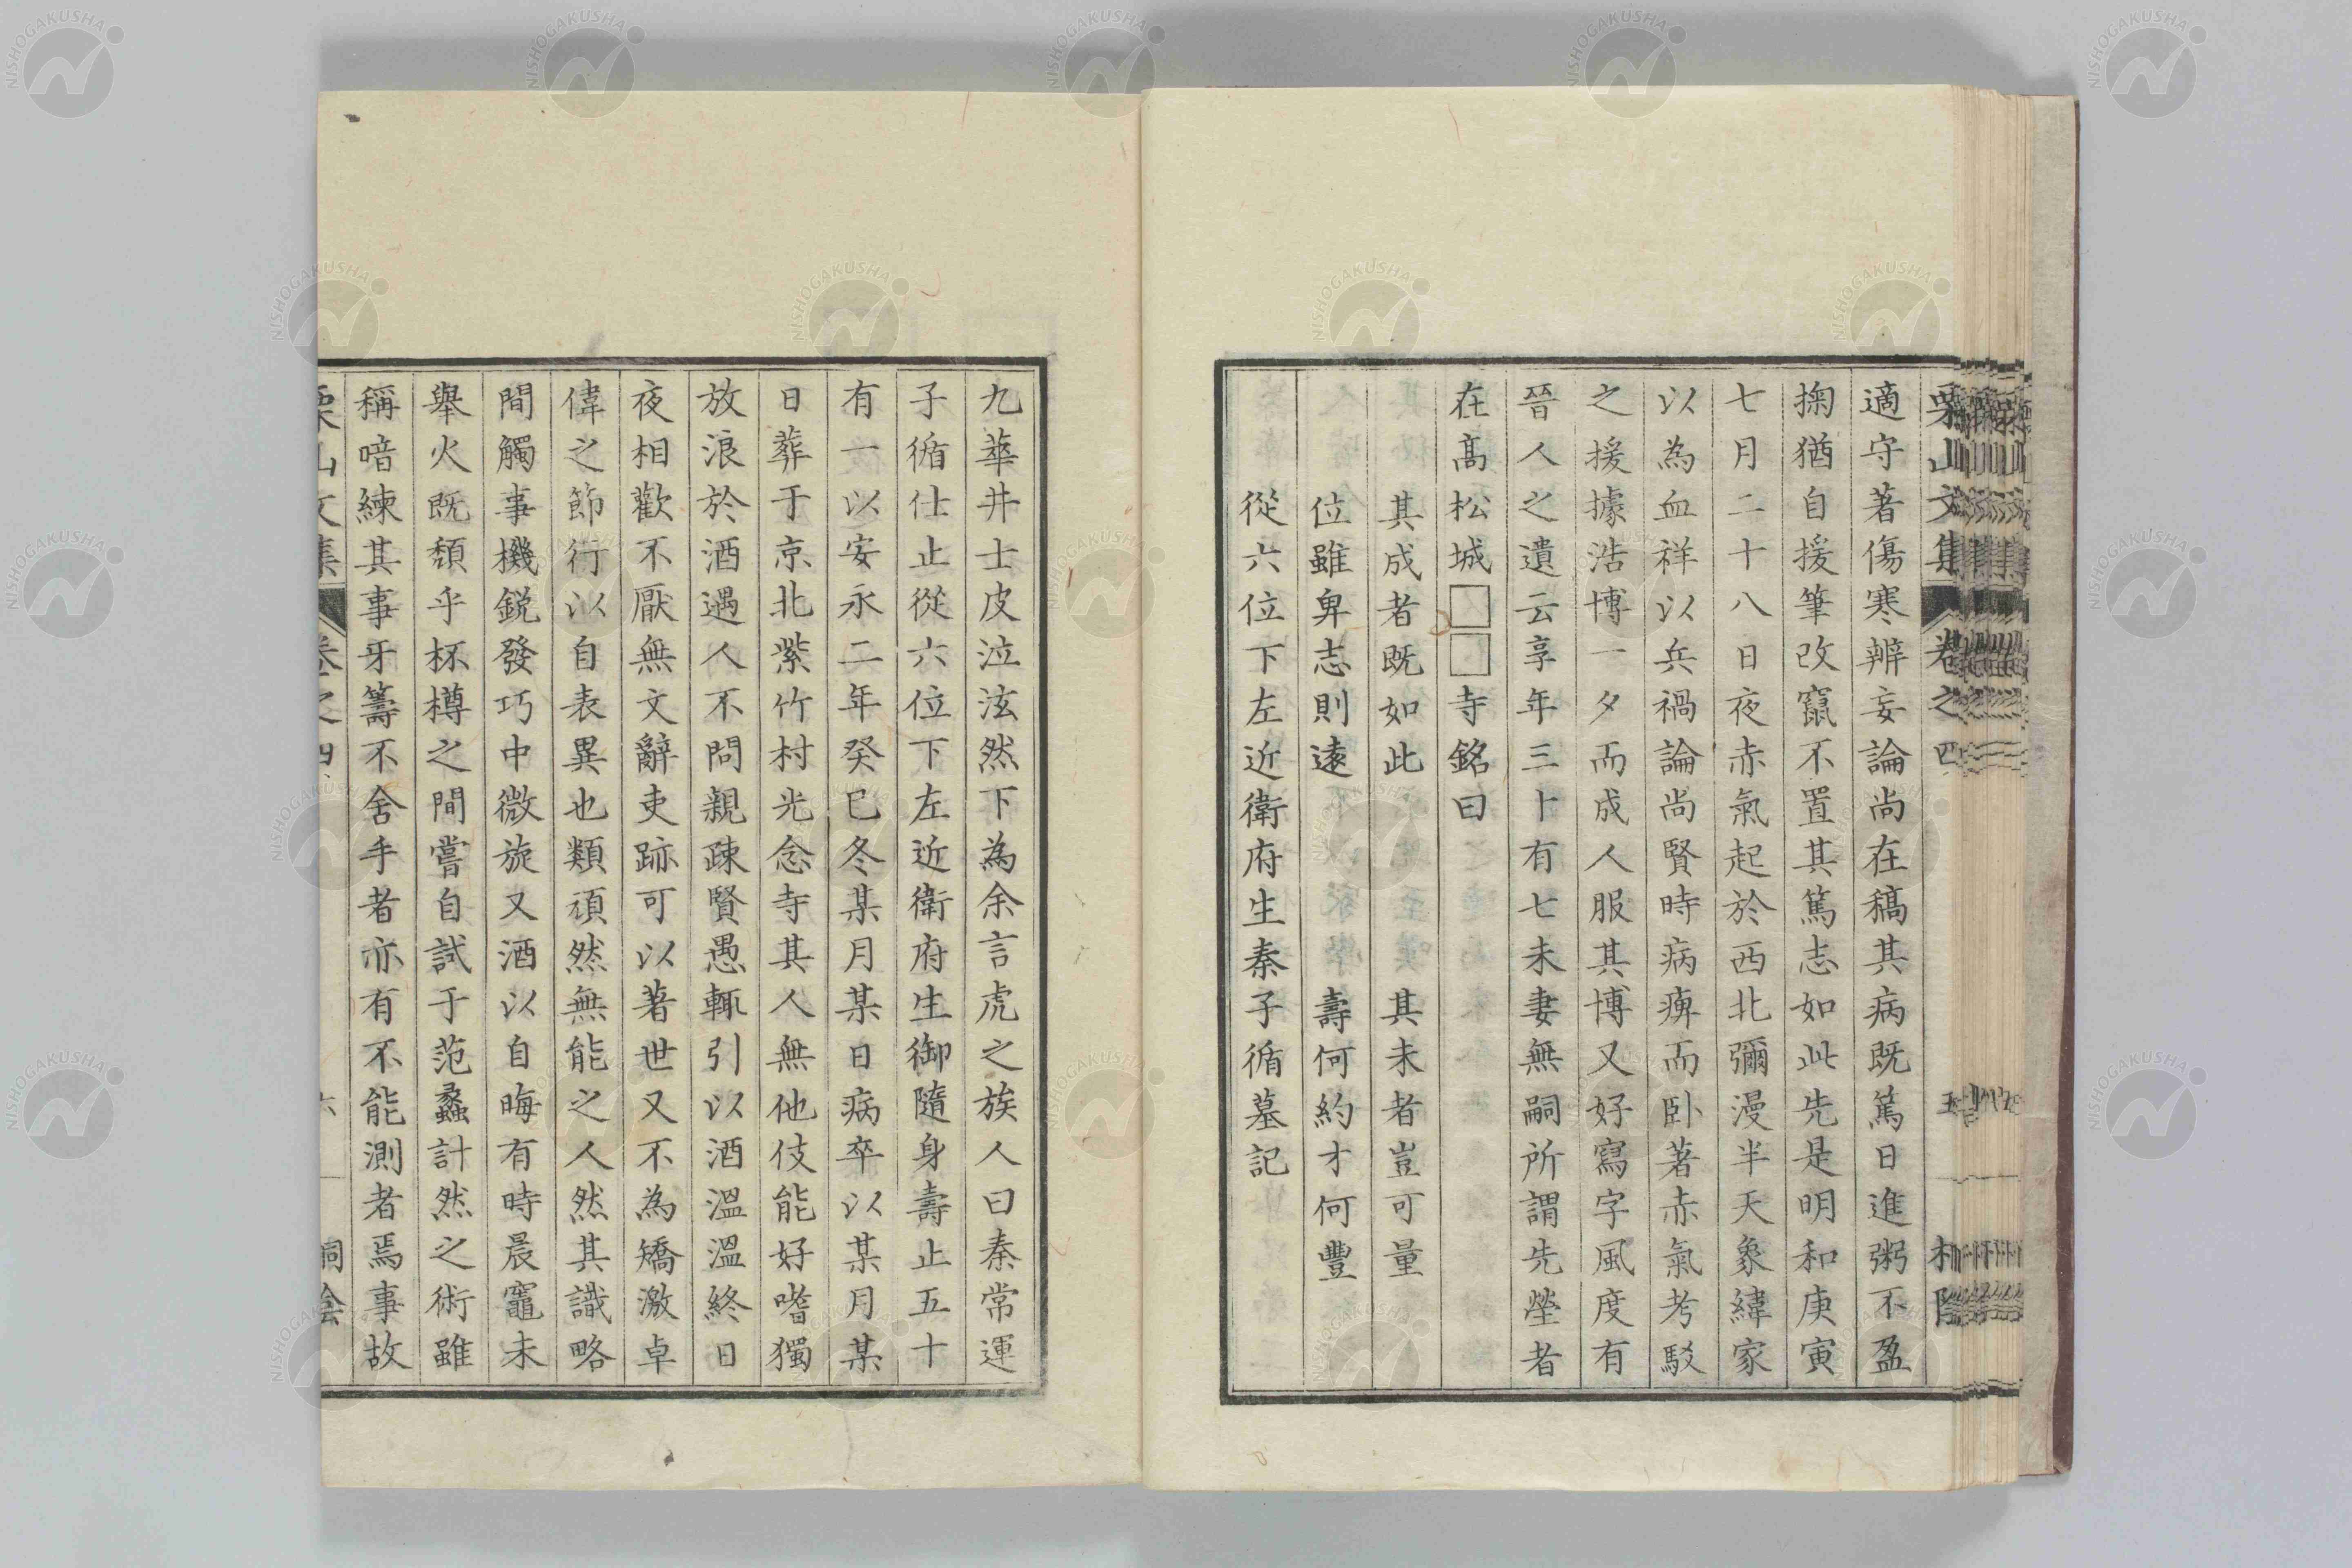 栗山文集 卷之四 五
適守著傷寒辨妄論尚在稿其病既篤日進粥不盈
掬猶自援筆改竄不置其篤志如此先是明和庚寅
七月二十八日夜赤氣起於西北彌漫半天象緯家
以為血祥以兵禍論尚賢時病痺而臥著赤氣考駁
之援據浩博一夕而成人服其博又好寫字風度有
晉人之遺云享年三十有七未妻無嗣所謂先塋者
在髙松城□□寺銘曰
其成者既如此 其未者豈可量
位雖卑志則遠 壽何約才何豐
從六位下左近衛府生秦子循墓記
九華井士皮泣泫然下為余言虎之族人曰秦常運
子循仕止從六位下左近衛府生御隨身壽止五十
有一以安永二年癸巳冬某月某日病卒以某月某
日葬于京北紫竹村光念寺其人無他伎能好嗜獨
放浪於酒遇人不問親疎賢愚輒引以酒溫溫終日
夜相歡不厭無文辭吏跡可以著世又不為矯激卓
偉之節行以自表異也類頑然無能之人然其識略
間觸事機鋭發巧中微旋又酒以自晦有時晨竈未
舉火既頹乎杯樽之間嘗自試于范蠡計然之術雖
稱喑練其事牙籌不舍手者亦有不能測者焉事故
栗山文集 卷之四 六
NISHOGAKUSHA